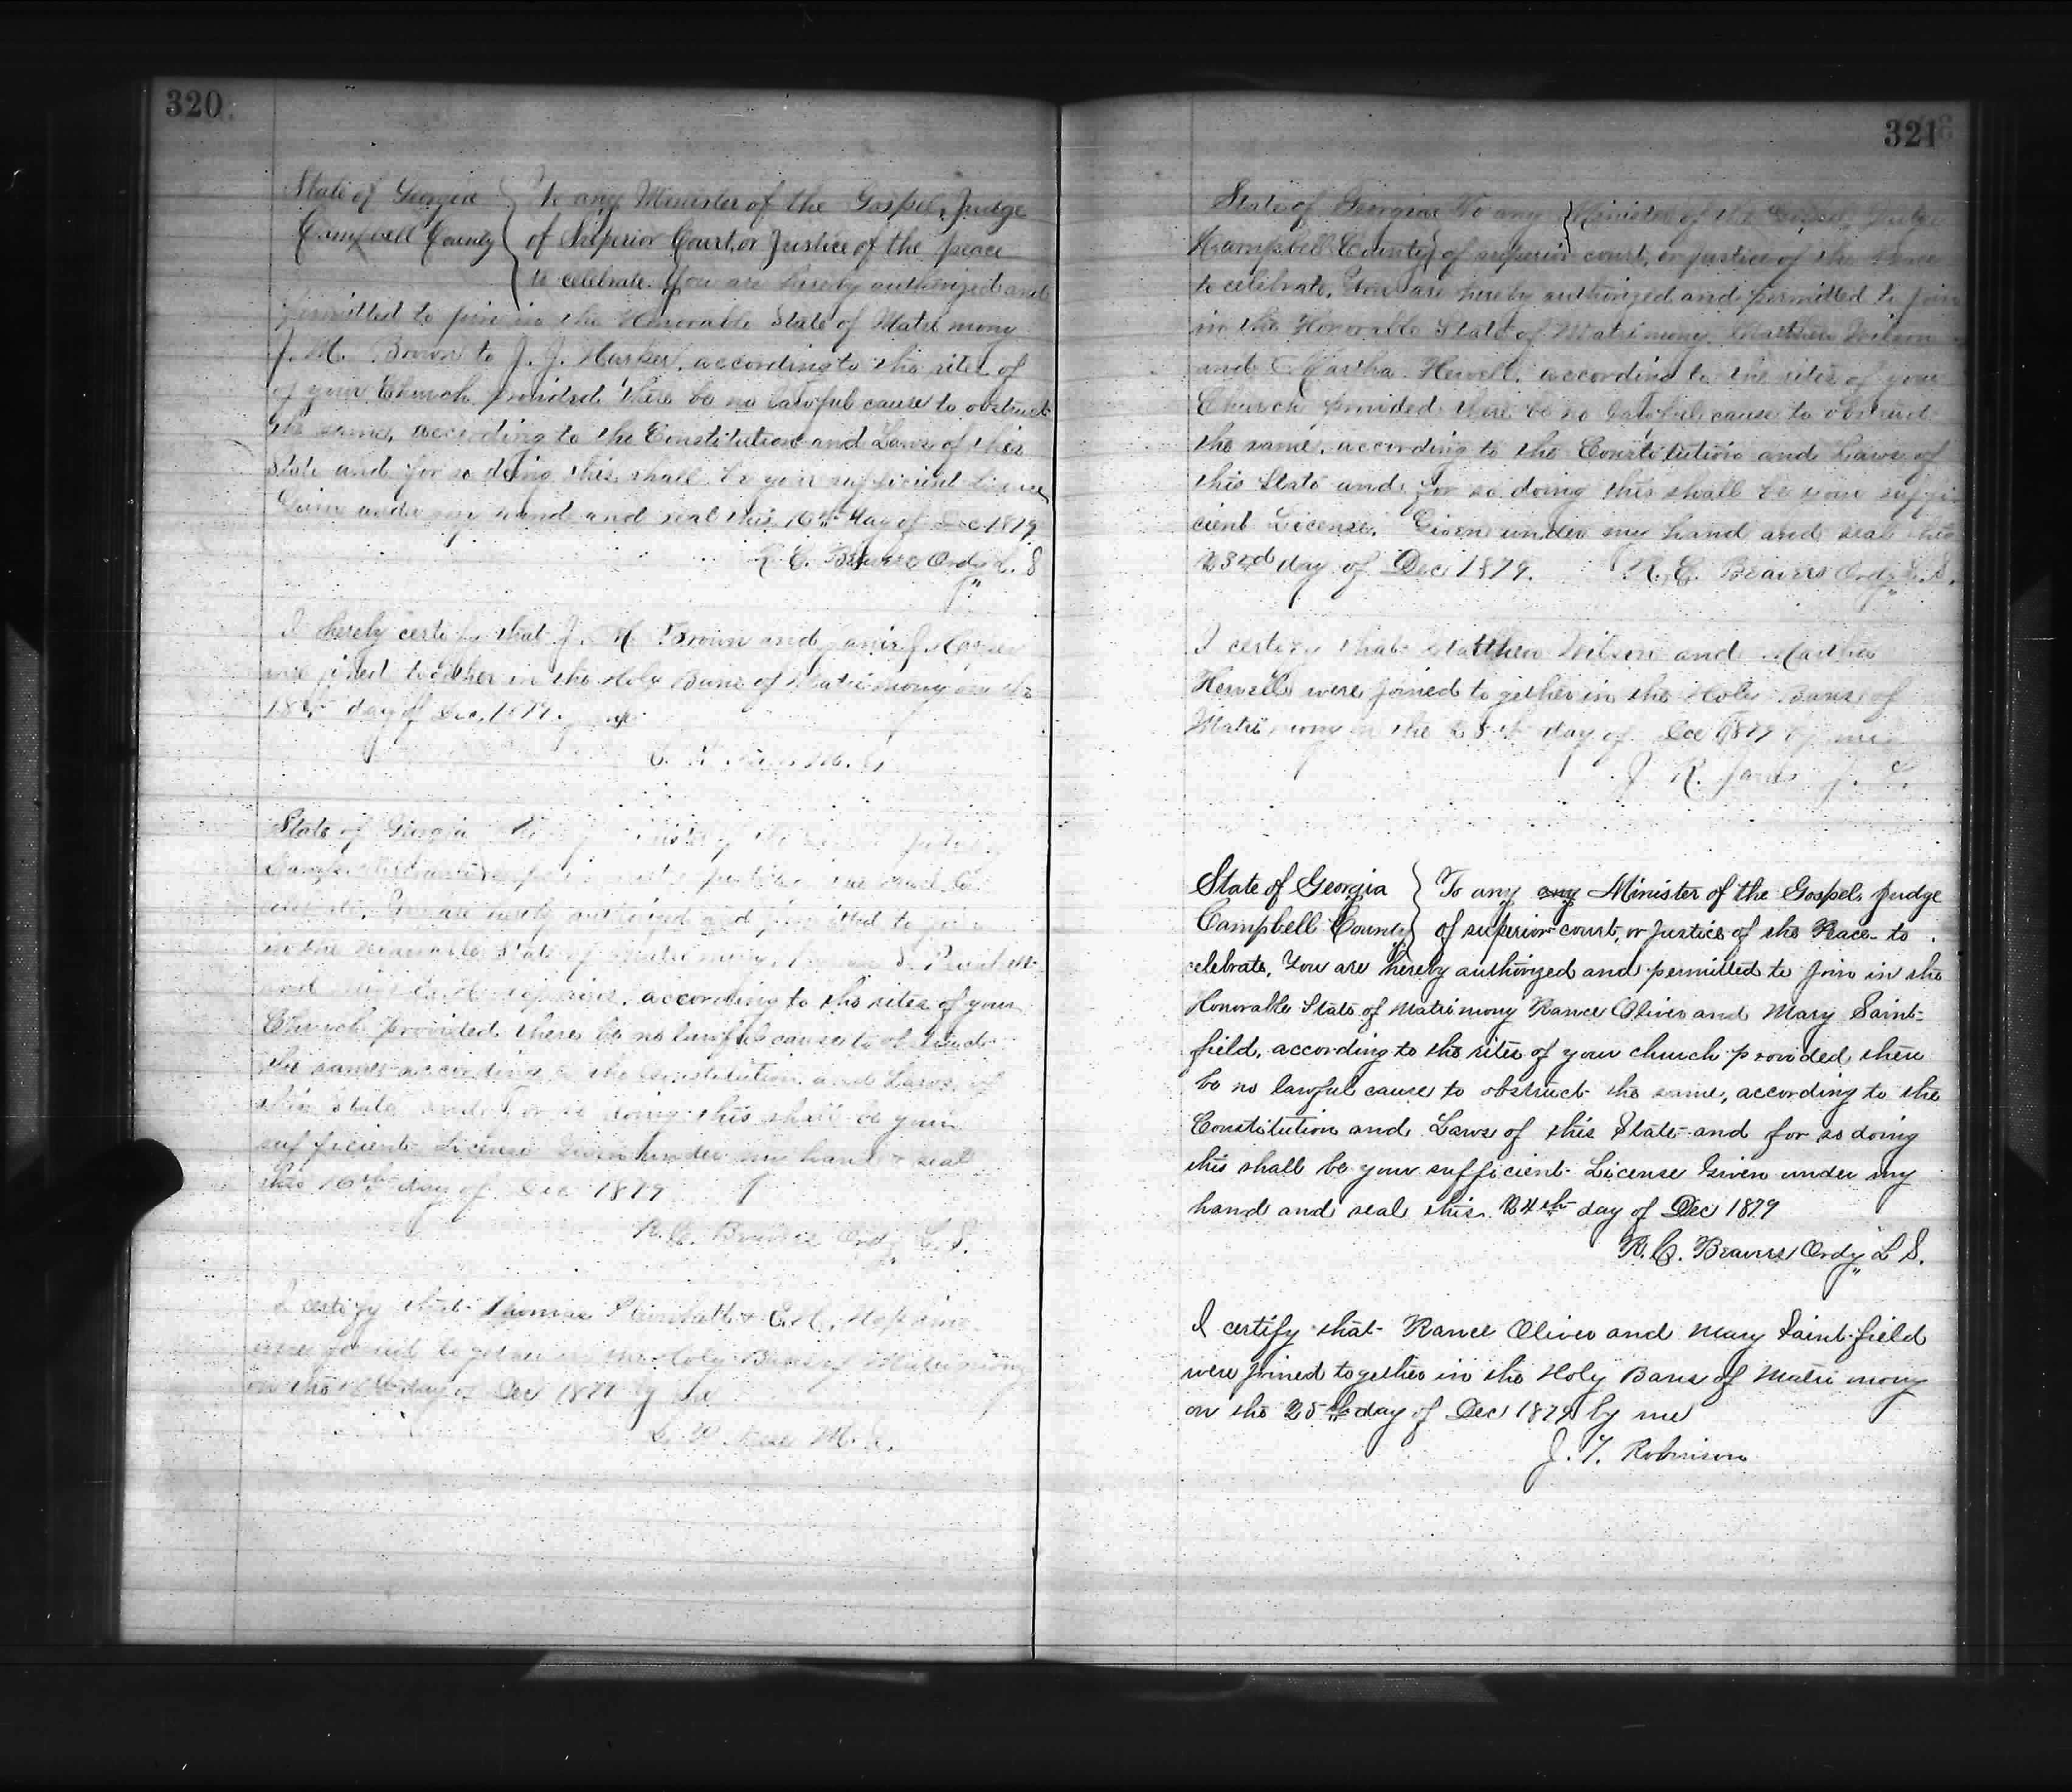 320
State of Georgia } To any Minister of the Gospel, Judge
Campbell County } of Superior Court, or Justice of the peace
to celebrate. You are hereby authorized and
permitted to join in the Honorable State of Matrimony
J. M. Brown to J. J. according to the rites of
of your Church provided there be no lawful cause to obstruct
the same, according to the Constitution and Laws of this
State and for so doing this shall be your sufficient License
Given under my hand and seal this 16th day of Dec 1879
R. C. Beavers Ordy L. S
I hereby certify that J. M. Brown and
were joined together in the Holy Bans of Matrimony on the
18th day of Dec. 1879.
State of Georgia
You are hereby authorized and permitted to join
in the Honorable State of Matrimony
and according to the rites of your
Church provided there be no lawful cause to obstruct
the same according to the Constitution and Laws of
this State and for so doing this shall be your
sufficient License Given under my hand & seal
this 16th day of Dec 1879
R. C. Beavers Ordy L. S.
I certify that Thomas & E. H.
were joined together in the Holy Bans of Matrimony
on the day of Dec 1879 by
321
State of Georgia To any } Minister of the Gospel, Judge
Campbell County } of superior court, or Justice of the Peace
to celebrate, You are hereby authorized and permitted to join
in the Honorable State of Matrimony Matthew Wilson
and Martha Hewell, according to the rites of your
Church provided there be no lawful cause to obstruct
the same, according to the Constitution and Laws of
this State and for so doing this shall be your suffi
cient License. Given under my hand and seal this
23rd day of Dec 1879. R. C. Beavers Ordy L. S.
I certify that Matthew Wilson and Martha
Hewell were joined together in the Holy Bans of
Matrimony on the 25th day of Dec 1879 by me
J. R. Jones J. P.
State of Georgia } To any any Minister of the Gospel, Judge
Campbell County } of superior court, or Justice of the Peace to
celebrate, You are hereby authorized and permitted to join in the
Honorable State of Matrimony Rance Oliver and Mary Saint-
field, according to the rites of your church provided there
be no lawful cause to obstruct the same, according to the
Constitution and Laws of this State and for so doing
this shall be your sufficient License Given under my
hand and seal this 24th day of Dec 1879
R. C. Beavers Ordy L S.
I certify that Rance Oliver and Mary Saintfield
were joined together in the Holy Bans of Matrimony
on the 25th day of Dec 1879 by me
J. T. Robinson